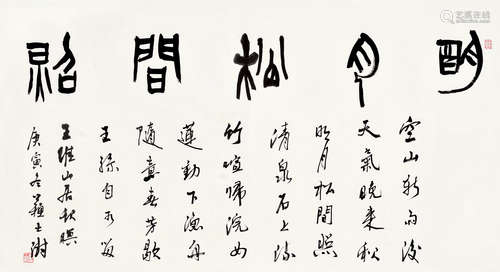 明月松間照
空山新雨後
天氣晚来秋
明月松間照
清泉石上流
竹喧歸浣女
蓮動下漁舟
隨意春芳歇
王孫自可留
王維山居秋暝
庚寅冬蘇士澍